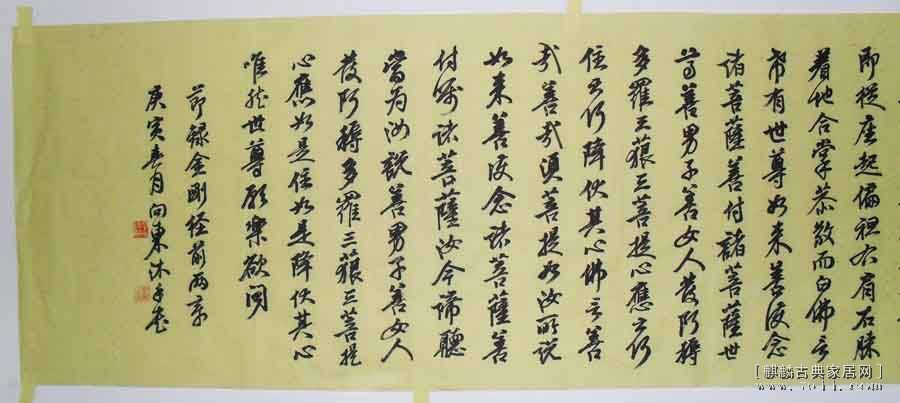 即從座起偏袒右肩右膝
着地合掌恭敬而白佛言
希有世尊如来善護念
諸菩薩善付諸菩薩世
尊善男子善女人發阿耨
多羅三藐三菩提心應云何
住云何降伏其心佛言善
哉善哉須菩提如汝所說
如来善護念諸菩薩善
付囑諸菩薩汝今諦聽
當为汝說善男子善女人
發阿耨多羅三藐三菩提
心應如是住如是降伏其心
唯然世尊願樂欲聞
節録金剛经前两章
庚寅春月向東沐手書
[麒麟古典家居网]